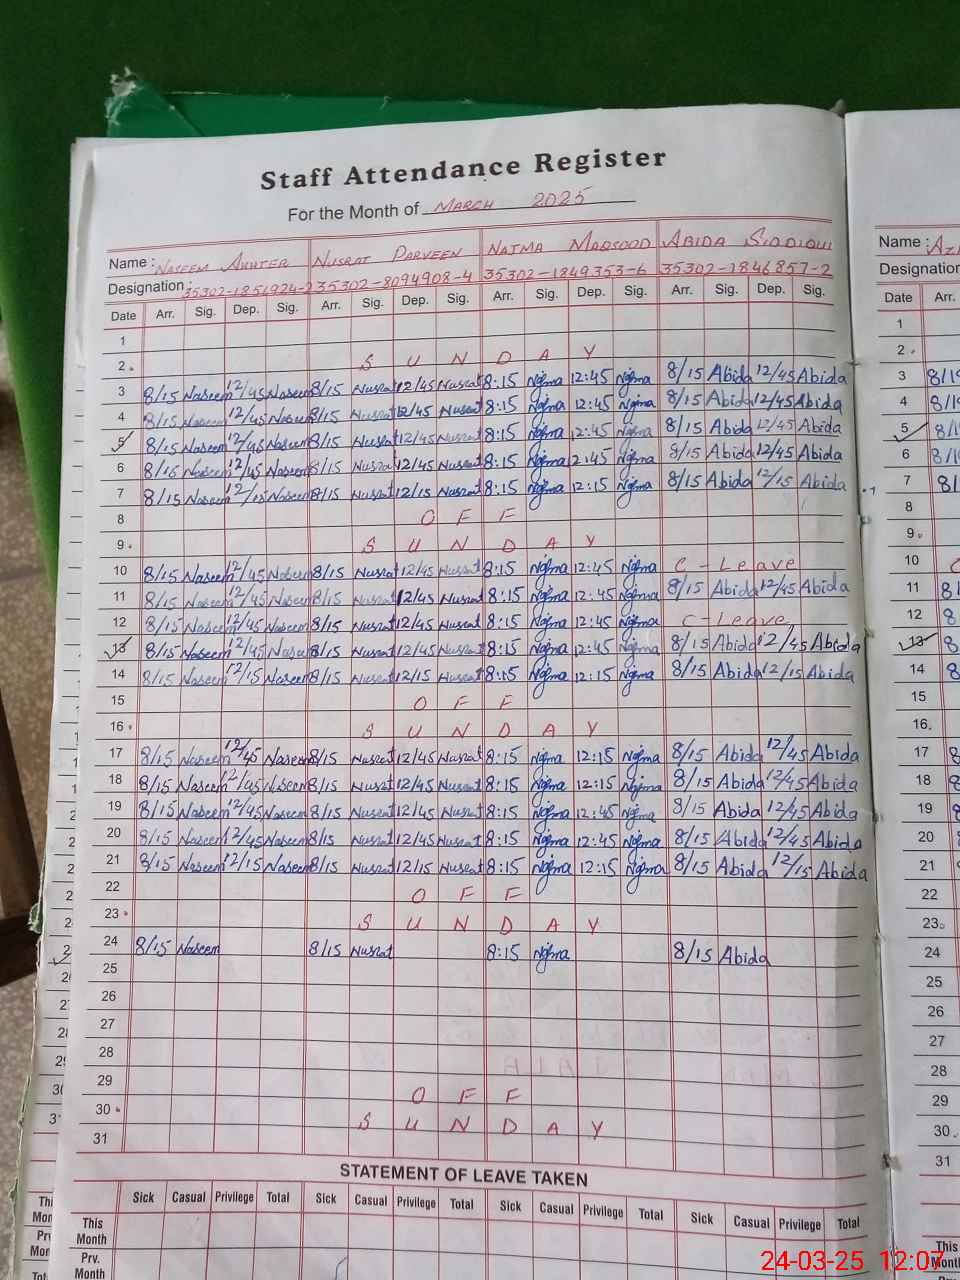 Staff Attendance Register
For the Month of MARCH 2025
Name : NASEEM AKHTER NUSRAT PARVEEN NAJMA MAQSOOD ABIDA SIDDIQUI Name :
Designation : 35302-8094908-4 35302-1849353-6 35302-1846857-2 Designation
Date Arr. Sig. Dep. Sig. Arr. Sig. Dep. Sig. Arr. Sig. Dep. Sig. Arr. Sig. Dep. Sig. Date Arr.
1 1
2 S U N D A Y 2
3 8/15 Naseem 12/45 Naseem 8/15 Nusrat 12/45 Nusrat 8:15 Najma 12:45 Najma 8/15 Abida 12/45 Abida 3
4 8/15 Naseem 12/45 Naseem 8/15 Nusrat 12/45 Nusrat 8:15 Najma 12:45 Najma 8/15 Abida 12/45 Abida 4
5 8/15 Naseem 12/45 Naseem 8/15 Nusrat 12/45 Nusrat 8:15 Najma 12:45 Najma 8/15 Abida 12/45 Abida 5
6 Naseem 12/45 Naseem 8/15 Nusrat 12/45 Nusrat 8:15 Najma 12:45 Najma 8/15 Abida 12/45 Abida 6
7 8/15 Naseem 12/15 Naseem 8/15 Nusrat 12/15 Nusrat 8:15 Najma 12:15 Najma 8/15 Abida 12/15 Abida 7
8 O F F 8
9 S U N D A Y 9
10 8/15 Naseem 12/45 Naseem 8/15 Nusrat 12/45 Nusrat 8:15 Najma 12:45 Najma C-Leave 10
11 8/15 Naseem 12/45 Naseem 8/15 Nusrat 12/45 Nusrat 8:15 Najma 12:45 Najma 8/15 Abida 12/45 Abida 11
12 8/15 Naseem 12/45 Naseem 8/15 Nusrat 12/45 Nusrat 8:15 Najma 12:45 Najma C-Leave 12
13 8/15 Naseem 12/45 Naseem 8/15 Nusrat 12/45 Nusrat 8:15 Najma 12:45 Najma 8/15 Abida 12/45 Abida 13
14 8/15 Naseem 12/15 Naseem 8/15 Nusrat 12/15 Nusrat 8:15 Najma 12:15 Najma 8/15 Abida 12/15 Abida 14
15 O F F 15
16 S U N D A Y 16.
17 8/15 Naseem 12/45 Naseem 8/15 Nusrat 12/45 Nusrat 8:15 Najma 12:15 Najma 8/15 Abida 12/45 Abida 17
18 8/15 Naseem 12/45 Naseem 8/15 Nusrat 12/45 Nusrat 8:15 Najma 12:15 Najma 8/15 Abida 12/45 Abida 18
19 8/15 Naseem 12/45 Naseem 8/15 Nusrat 12/45 Nusrat 8:15 Najma 12:45 Najma 8/15 Abida 12/45 Abida 19
20 8/15 Naseem 12/45 Naseem 8/15 Nusrat 12/45 Nusrat 8:15 Najma 12:45 Najma 8/15 Abida 12/45 Abida 20
21 8/15 Naseem 12/15 Naseem 8/15 Nusrat 12/15 Nusrat 8:15 Najma 12:15 Najma 8/15 Abida 12/15 Abida 21
22 O F F 22
23 S U N D A Y 23
24 8/15 Naseem 8/15 Nusrat 8:15 Najma 8/15 Abida 24
25 25
26 26
27 27
28 28
29 O F F 29
30 S U N D A Y 30
31 31
STATEMENT OF LEAVE TAKEN
Sick Casual Privilege Total Sick Casual Privilege Total Sick Casual Privilege Total Sick Casual Privilege Total
This Month This Month
Prv. Month
24-03-25 12:07